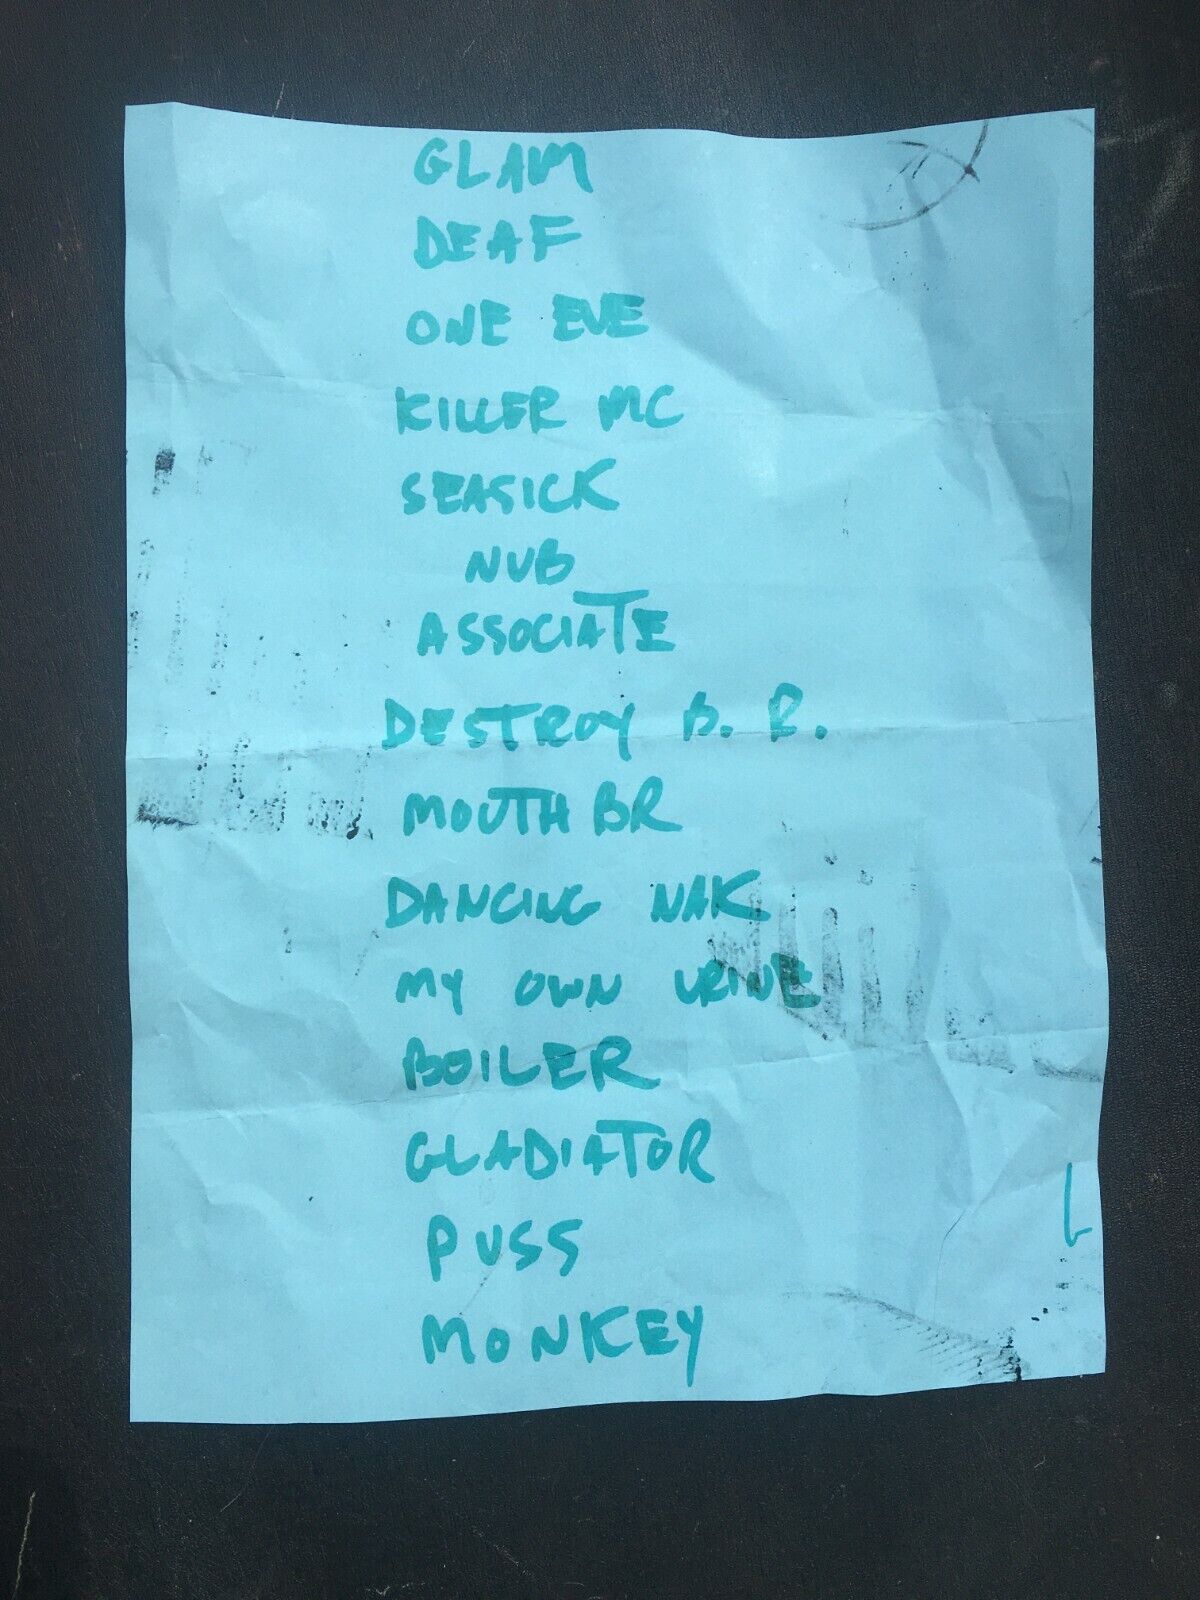 GLAM
DEAF
ONE EYE
KILLER MC
SEASICK
NUB
ASSOCIATE
DESTROY B. R.
MOUTH BR
DANCING NAK
MY OWN URINE
BOILER
GLADIATOR
PUSS
MONKEY